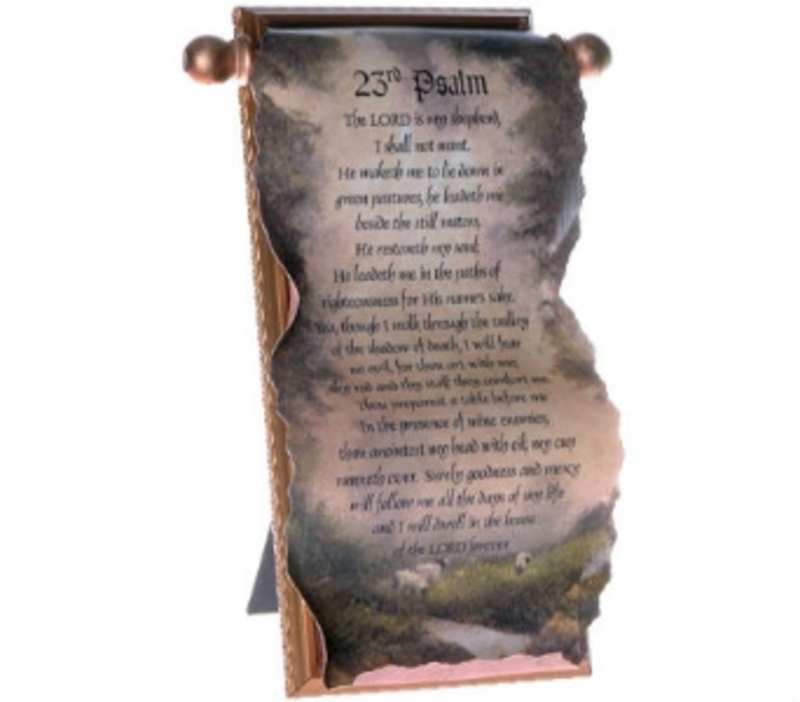 23rd Psalm
The LORD is my shepherd,
I shall not want.
He maketh me to lie down in
green pastures, he leadeth me
beside the still waters,
He restoreth my soul:
He leadeth me in the paths of
righteousness for His name's sake.
Yea, though I walk through the valley
of the shadow of death, I will fear
no evil, for thou art with me;
thy rod and thy staff they comfort me.
thou preparest a table before me
In the presence of mine enemies,
thou anointest my head with oil; my cup
runneth over. Surely goodness and mercy
will follow me all the days of my life
and I will dwell in the house
of the LORD forever